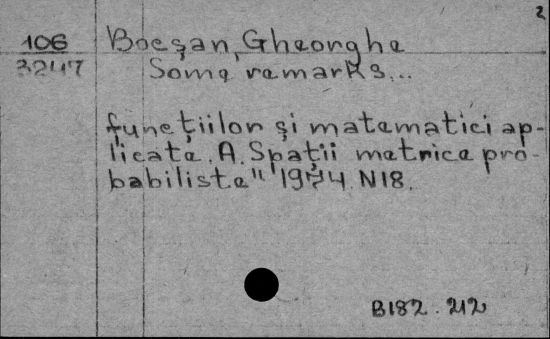 2
106 Bocşan, Gheorghe
3247 Some remarks...
funcţiilor şi matematici ap-
licate. A. Spaţii metrice pro-
babiliste" 1974. N18.
B182. 212